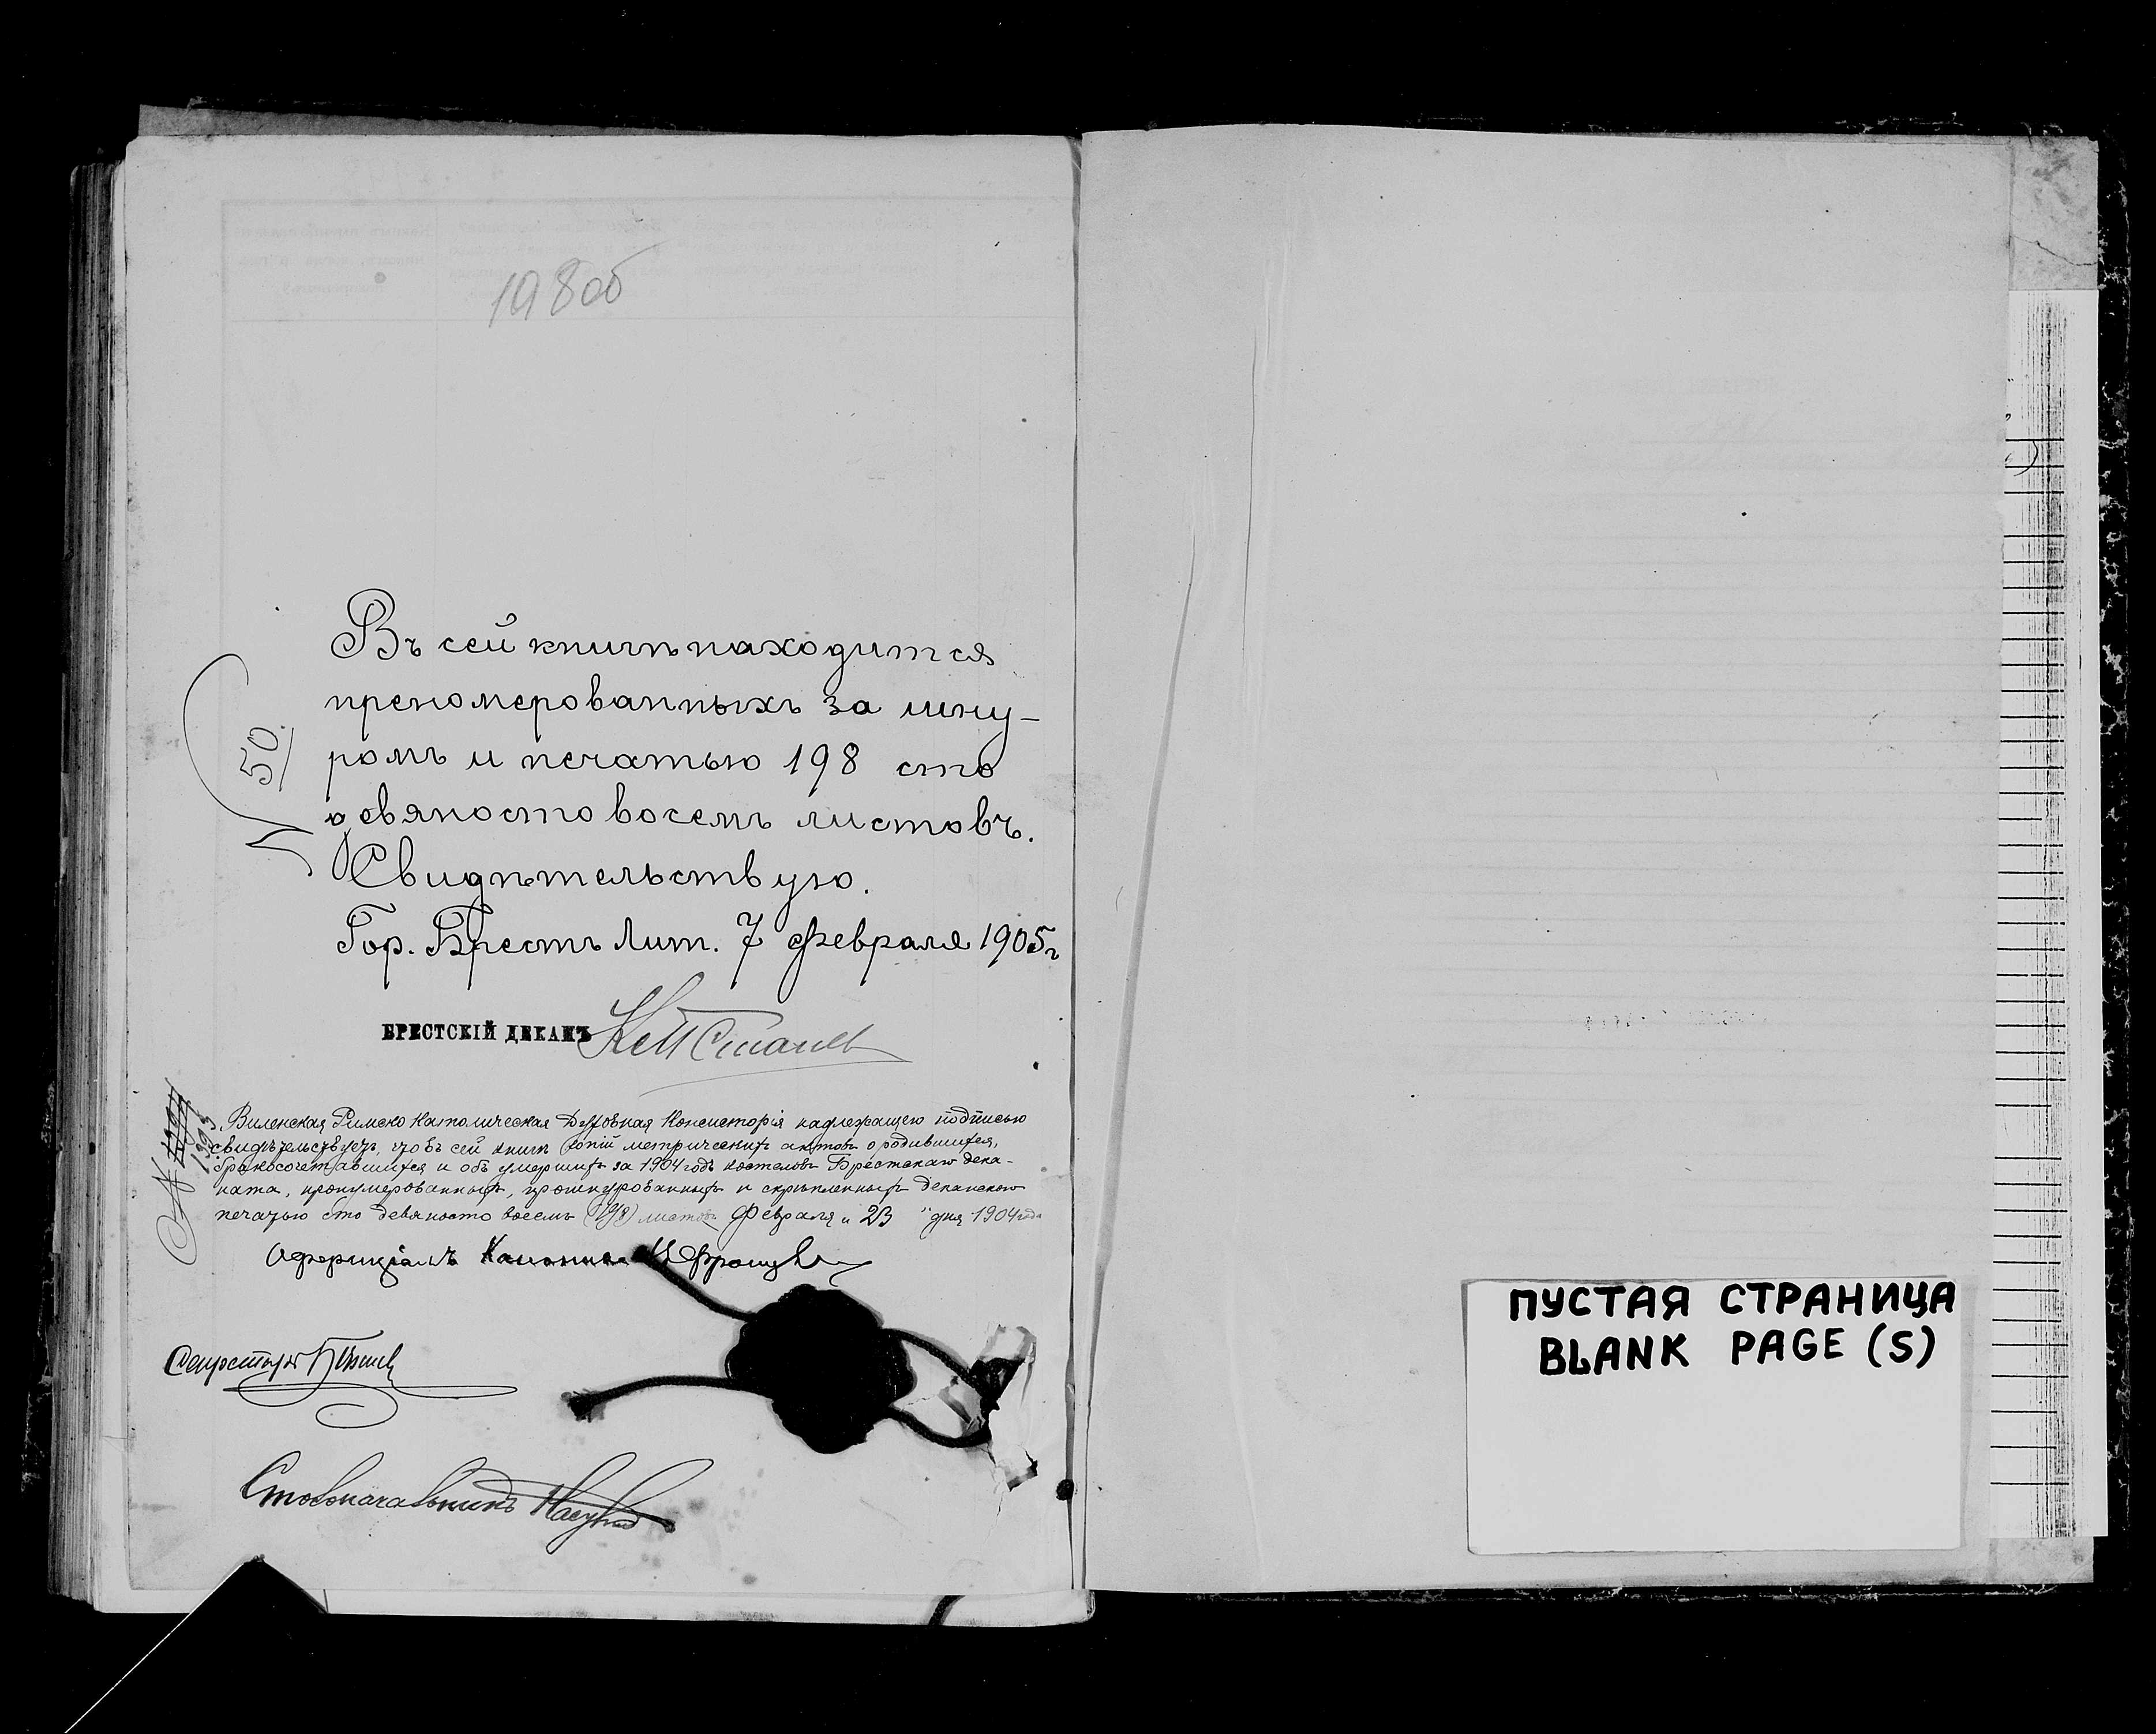 198об
Въ сей книгѣ находится
преномерованныхъ за шну-
ромъ и печатью 198 сто
девяносто восемъ листовъ.
Свидѣтельствую.
Гор. Брестъ Лит. 7 Февраля 1905 г
N 50
БРЕСТСКІЙ ДЕКАНЪ
N 1993
Виленская Римско Католическая Духовная Консисторія надлежащею подписью
свидѣтельствуетъ, что въ сей книгѣ копій метрическихъ актовъ о родившихся,
бракосочетавшихся и объ умершихъ за 1904 годъ костеловъ Брестскаго дека-
ната, пронумерованныхъ, прошнурованныхъ и скрѣпленныхъ деканскою
печатью сто девяносто восемь (198) листовъ Февраля „ 23 " дня 1904 года
Оффиціалъ Каноникъ
Секретарь
Столоначальникъ
ПУСТАЯ СТРАНИЦА
BLANK PAGE (S)